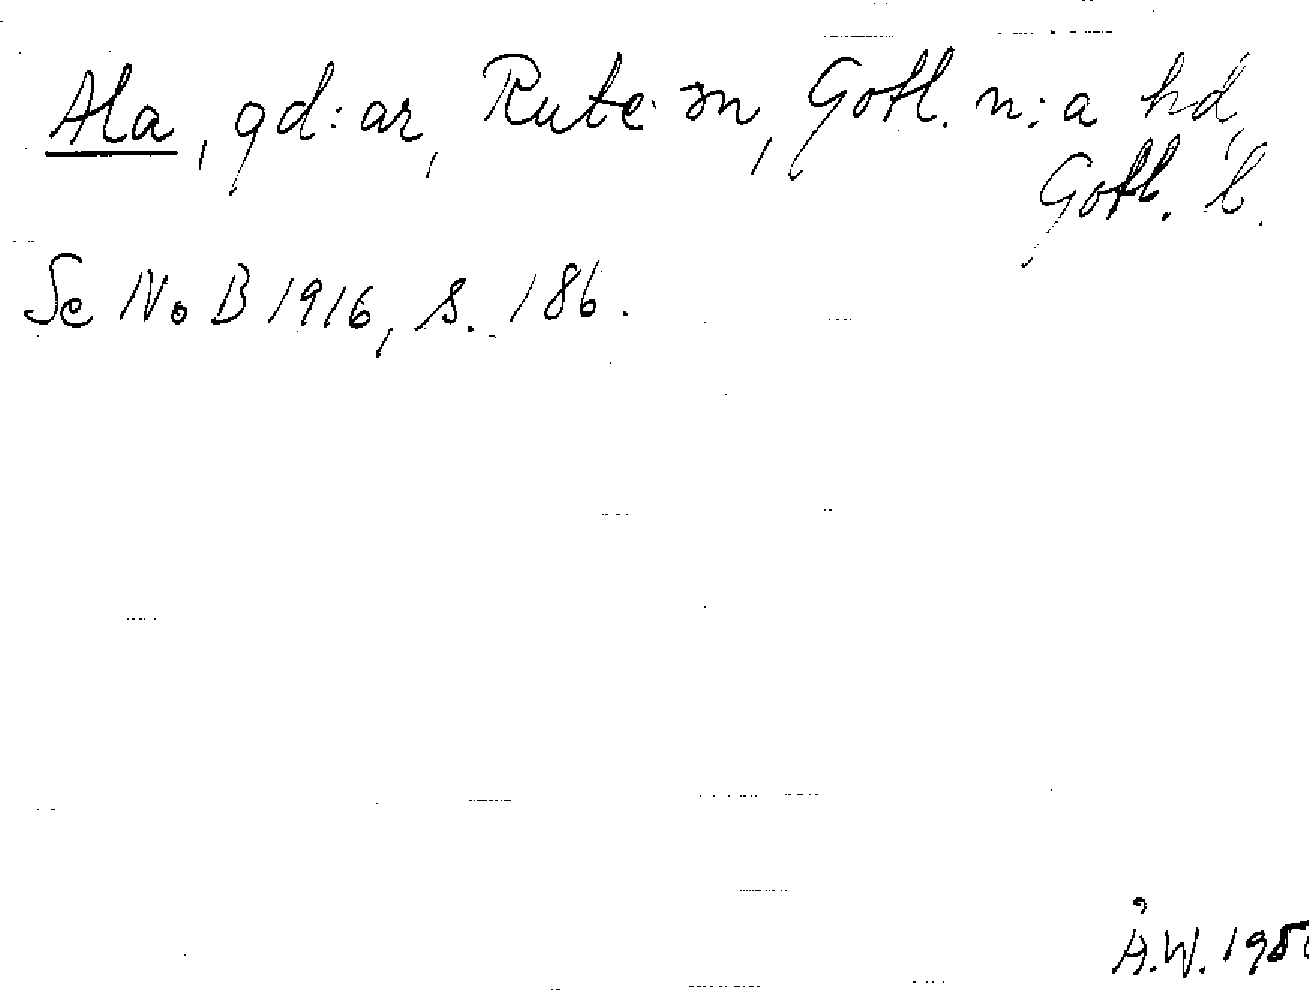 Ala, gd:ar, Rute sn, Gotl. n:a hd,
Gotl. l.
Se NoB 1916, s. 186.
Å.W.